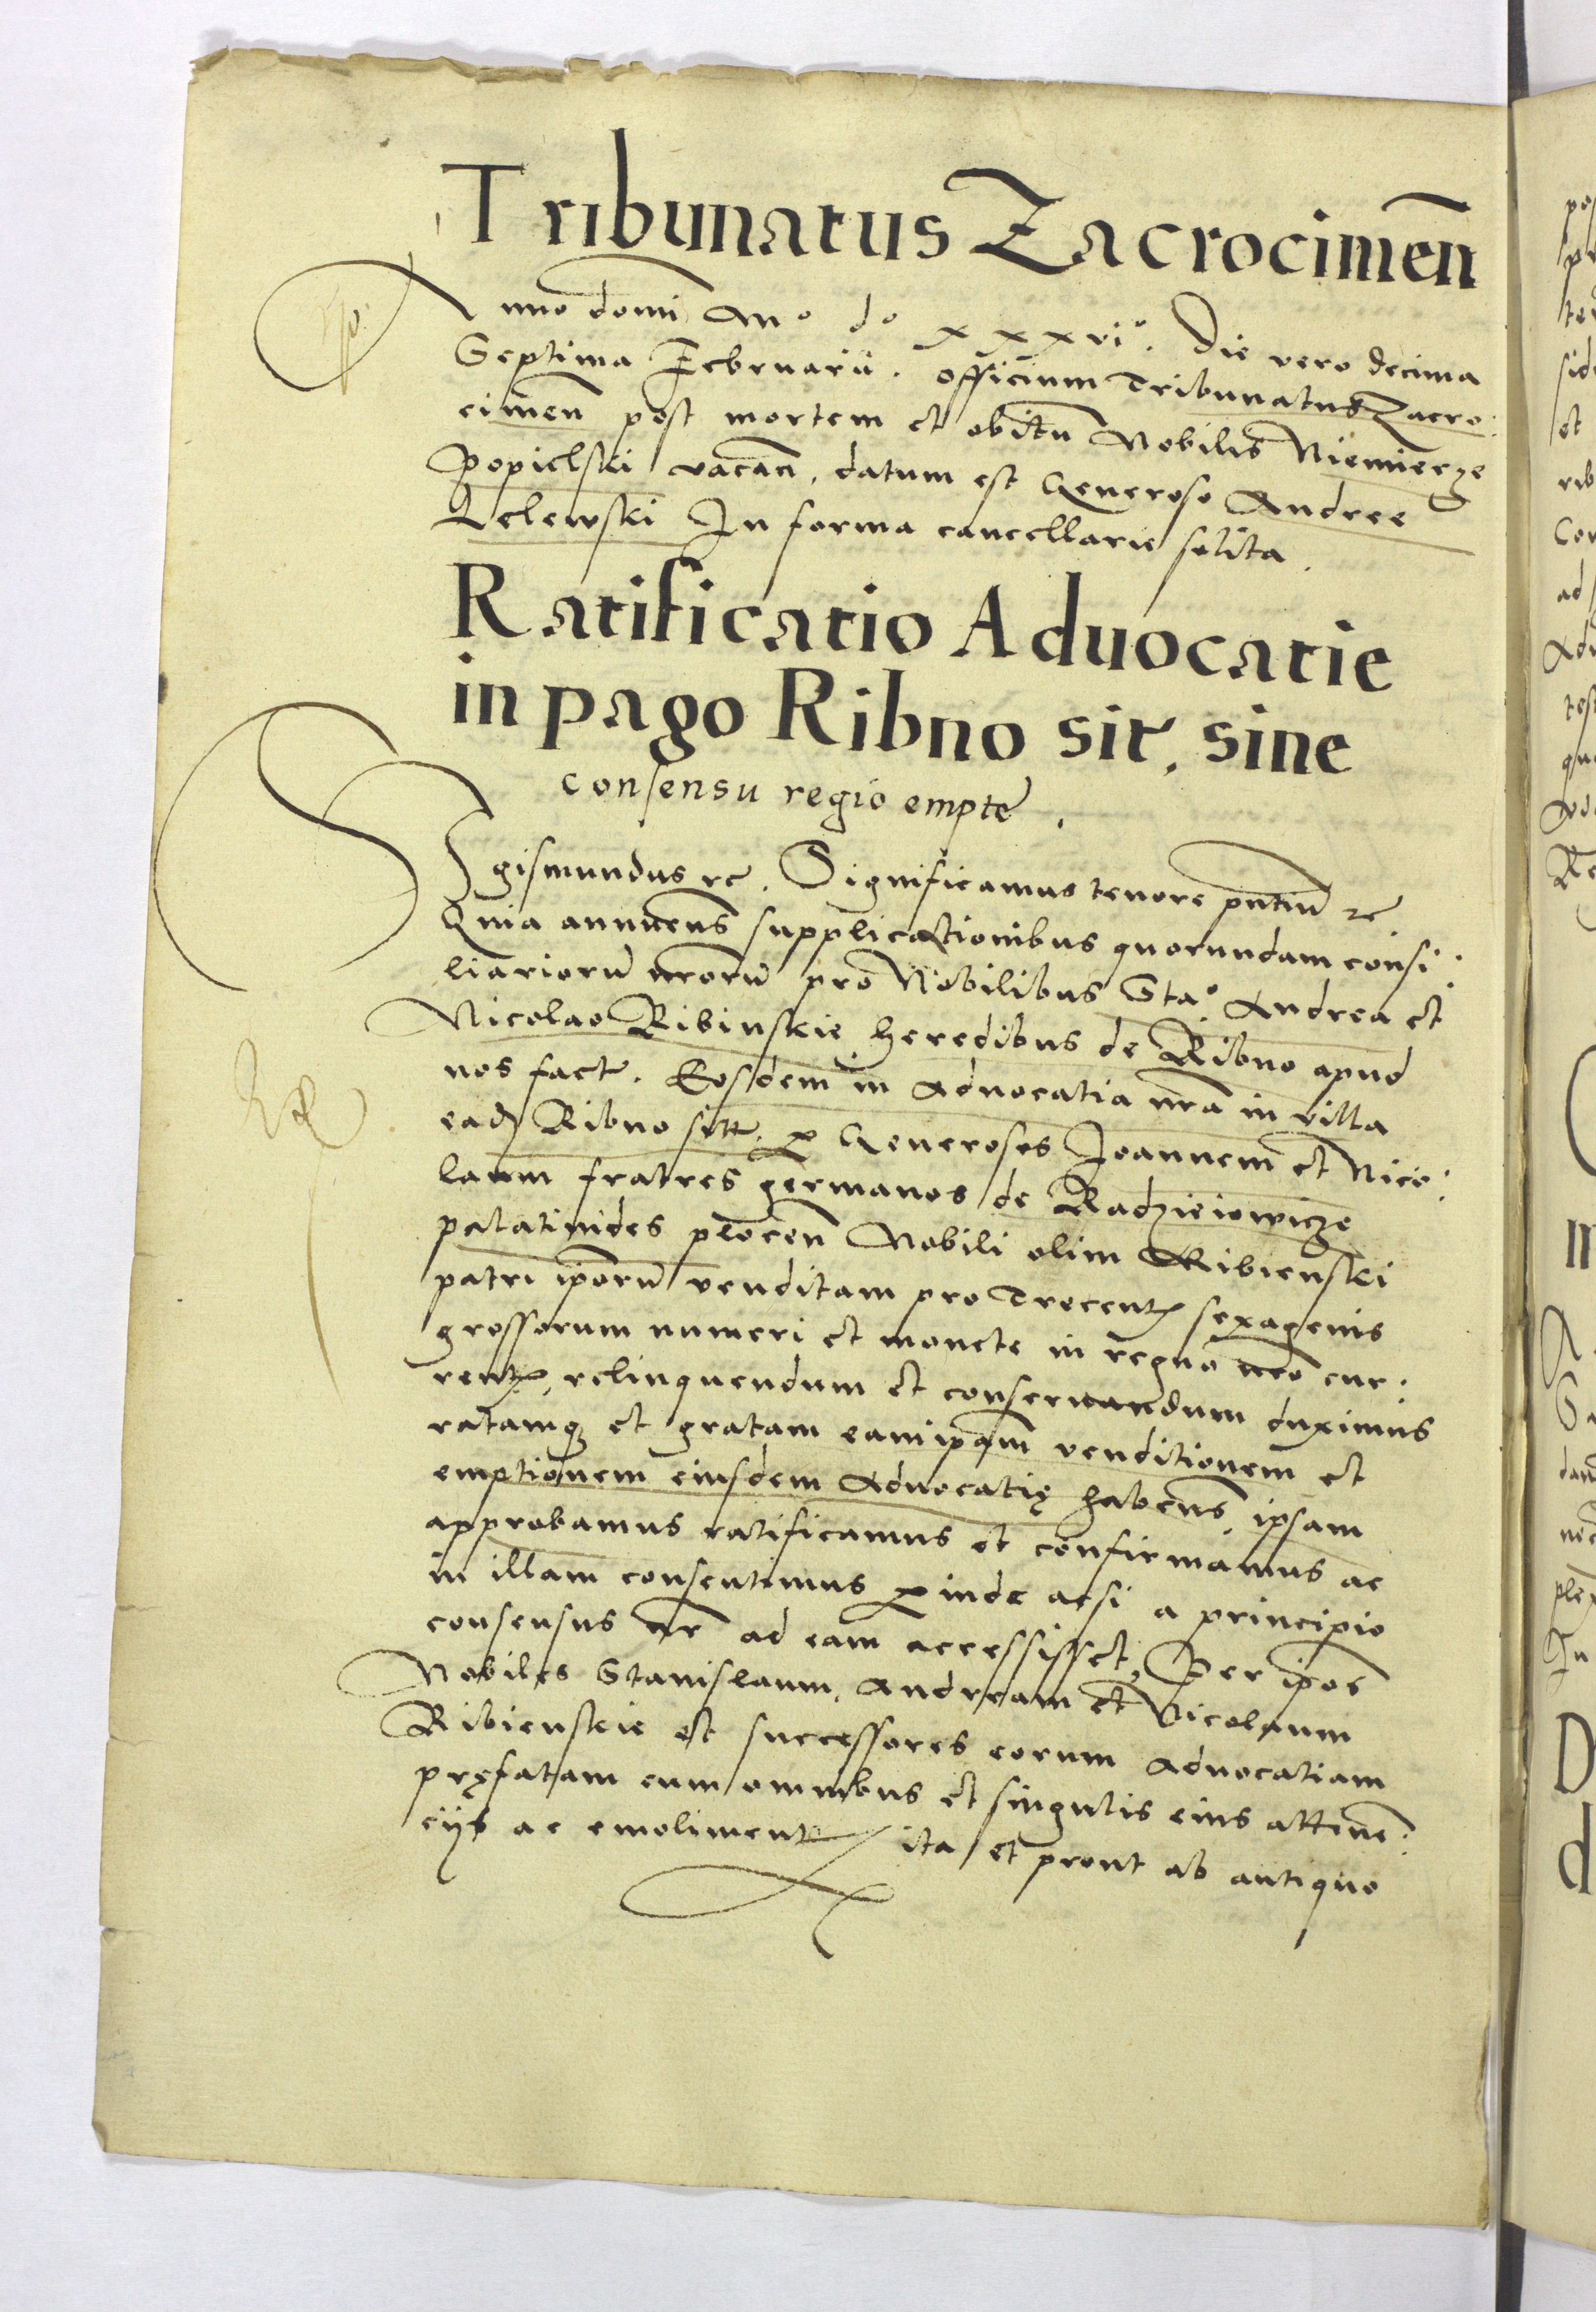 Tribunatus Zacrocimen̄
Anno domi Mº dº xxxviº. Die vero decima
Septima Februarii. officium Tribunatus Zacro:
cimen̄ post mortem et obitū Nobilis Niemierze
Popielski vacan̄. datum est Generoso Andree
Lelewski In forma cancellarie solita.
Ratificatio Aduocatie
in pago Ribno sit. sine
consensu regio empte.
Sigismundus rc. Significamus tenore pn̄tiū rc
Quia annuen̄s supplicationibus quorundam consi:
liariorū nr̄orū pro Nobilibus Staº. Andrea et
Nicolao Ribinskie heredibus de Ribno apud
nos fact. Eosdem in Aduocatia nr̄a in villa
ead Ribno sitt. p Generosos Joannem et Nico:
laum fratres germanos de Radzieiowicze
palatinides plocen̄ Nobili olim Ribienski
patri ip̄orū venditam pro Trecent sexagenis
grossorum numeri et monete in regno nr̄o cur:
rent, relinquendum et conseruandum duximus
ratamq et gratam eamip̄am venditionem et
emptionem eiusdem Aduocatię haben̄s, ipsam
approbamus ratificamus et confirmamus ac
in illam consentimus p inde acsi a principio
consensus nr̄ ad eam accessisset, Per ip̄os
Nobiles Stanislaum, Andream et Nicolaum
Ribienskie et successores eorum Aduocatiam
pręfatam cum omnibus et singulis eius attinen̄:
ciis ac emoliment ita et prout ab antiquo